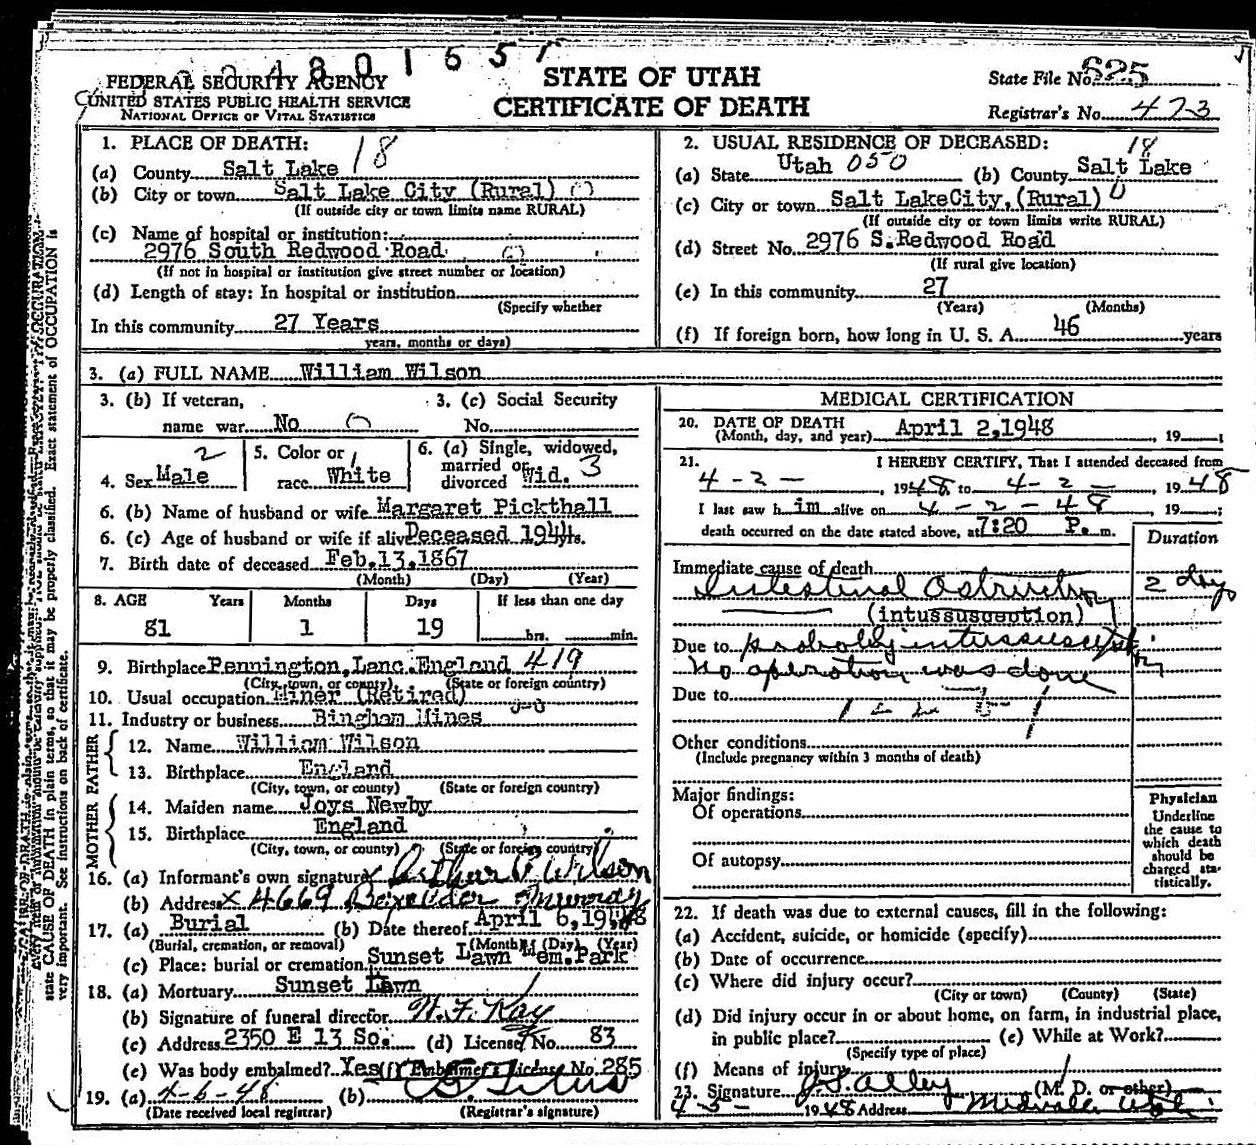 4801651
FEDERAL SECURITY AGENCY
UNITED STATES PUBLIC HEALTH SERVICE
NATIONAL OFFICE OF VITAL STATISTICS
STATE OF UTAH
CERTIFICATE OF DEATH
State File No. 625
Registrar's No. 473
1. PLACE OF DEATH: 18
(a) County Salt Lake
(b) City or town Salt Lake City (Rural) 0
(If outside city or town limits name RURAL)
(c) Name of hospital or institution:
2976 South Redwood Road
(If not in hospital or institution give street number or location)
(d) Length of stay: In hospital or institution
(Specify whether
In this community 27 Years
years, months or days)
2. USUAL RESIDENCE OF DECEASED: 18
(a) State Utah 050 (b) County Salt Lake
(c) City or town Salt LakeCity, (Rural) 0
(If outside city or town limits write RURAL)
(d) Street No. 2976 S. Redwood Road
(If rural give location)
(e) In this community 27
(Years) (Months)
(f) If foreign born, how long in U. S. A. 46 years
3. (a) FULL NAME William Wilson
3. (b) If veteran, 3. (c) Social Security
name war No 0 No.
4. Sex Male 2
5. Color or race White 1
6. (a) Single, widowed, married or divorced Wid. 3
6. (b) Name of husband or wife Margaret Pickthall
6. (c) Age of husband or wife if alive Deceased 1944 yrs.
7. Birth date of deceased Feb.13,1867
(Month) (Day) (Year)
8. AGE Years Months Days If less than one day
81 1 19 hrs. min.
9. Birthplace Pennington, Lanc. England 419
(City, town, or county) (State or foreign country)
10. Usual occupation Miner (Retired)
11. Industry or business Bingham Mines
FATHER
12. Name William Wilson
13. Birthplace England
(City, town, or county) (State or foreign country)
MOTHER
14. Maiden name Joys Newby
15. Birthplace England
(City, town, or county) (State or foreign country)
16. (a) Informant's own signature x Arthur P Wilson
(b) Address x 4669 Murray
17. (a) Burial (b) Date thereof April 6, 1948
(Burial, cremation, or removal) (Month) (Day) (Year)
(c) Place: burial or cremation Sunset Lawn Mem. Park
18. (a) Mortuary Sunset Lawn
(b) Signature of funeral director W. F. Kay
(c) Address 2350 E 13 So. (d) License No. 83
(e) Was body embalmed? Yes (f) Embalmer's License No. 285
19. (a) 4-6-48 (b)
(Date received local registrar) (Registrar's signature)
MEDICAL CERTIFICATION
20. DATE OF DEATH
(Month, day, and year) April 2, 1948, 19 ;
21. I HEREBY CERTIFY, That I attended deceased from
4-2-, 1948 to 4-2-, 1948
I last saw him alive on 4-2-48, 19 ;
death occurred on the date stated above, at 7:20 P. m.
Duration
Immediate cause of death
Intestinal Obstruction 2 days
(intussusception)
Due to probably intussusception
No operation was done
Due to
Other conditions
(Include pregnancy within 3 months of death)
Major findings:
Of operations
Of autopsy
Physician
Underline
the cause to
which death
should be
charged sta-
tistically.
22. If death was due to external causes, fill in the following:
(a) Accident, suicide, or homicide (specify)
(b) Date of occurrence
(c) Where did injury occur?
(City or town) (County) (State)
(d) Did injury occur in or about home, on farm, in industrial place,
in public place? (e) While at Work?
(Specify type of place)
(f) Means of injury
23. Signature J.S. Alley (M. D. or other)
4-5- 1948 Address Midvale Utah
state CAUSE OF DEATH in plain terms, so that it may be properly classified. Exact statement of OCCUPATION is
very important. See instructions on back of certificate.